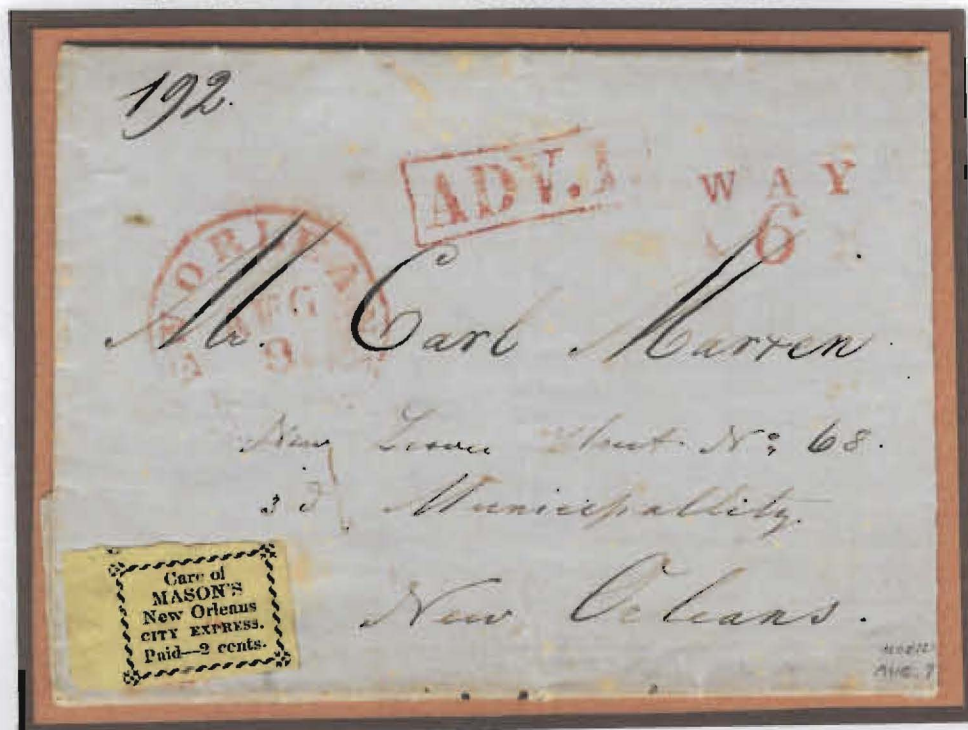 192.
ADV.
WAY
6
ORLEA
AUG
9
Mr. Carl Marren
New Street No. 68.
3d Municipallity.
New Orleans.
Care of
MASON'S
New Orleans
CITY EXPRESS.
Paid—2 cents.
AUG. 9